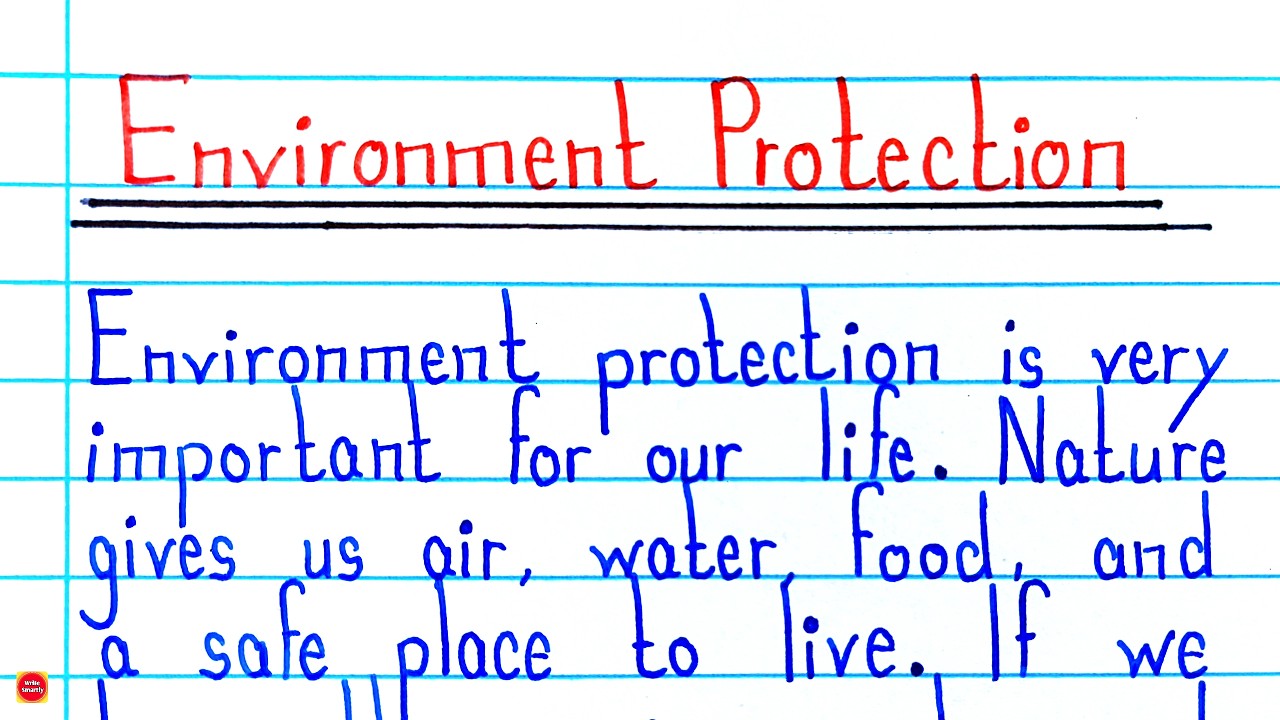 Environment Protection
Environment protection is very
important for our life. Nature
gives us air, water, food, and
a safe place to live. If we
Write
Smartly